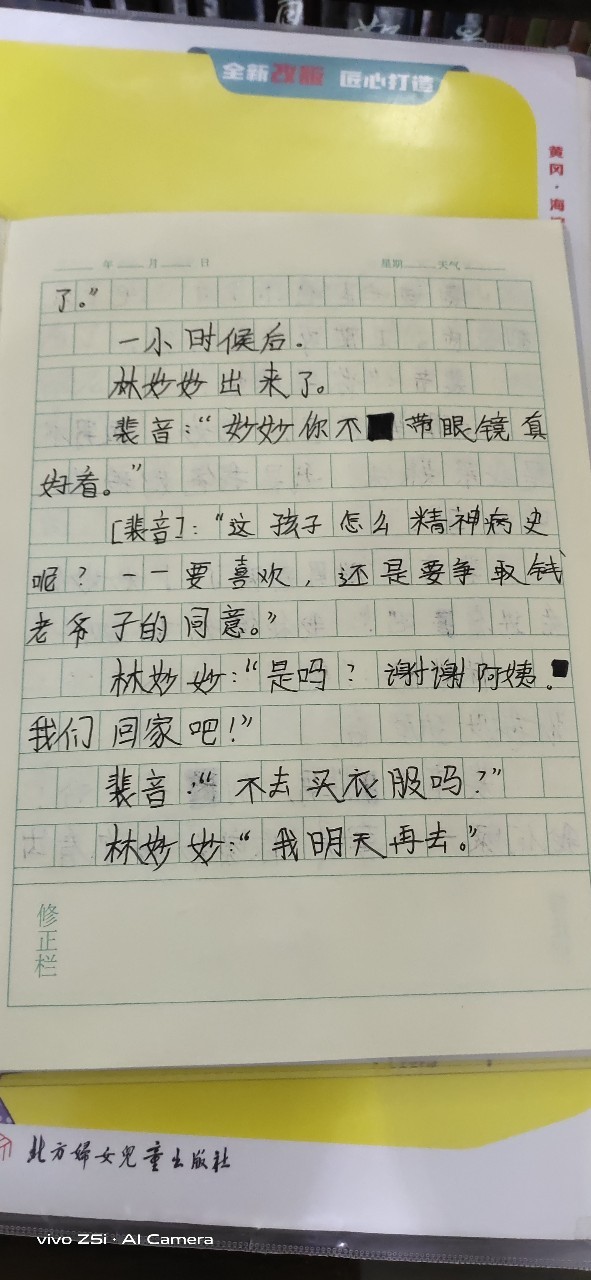 全新改版 匠心打造
黄冈·海
年 月 日 星期 天气
了。”
一小时候后.
林妙妙出来了。
裴音:“妙妙你不带眼镜真
好看。”
[裴音]:“这孩子怎么精神病史
呢?一一要喜欢,还是要争取钱
老爷子的同意。”
林妙妙:“是吗?谢谢阿姨.
我们回家吧!”
裴音:“不去买衣服吗?”
林妙妙:“我明天再去。”
修正栏
北方妇女儿童出版社
vivo Z5i·AI Camera